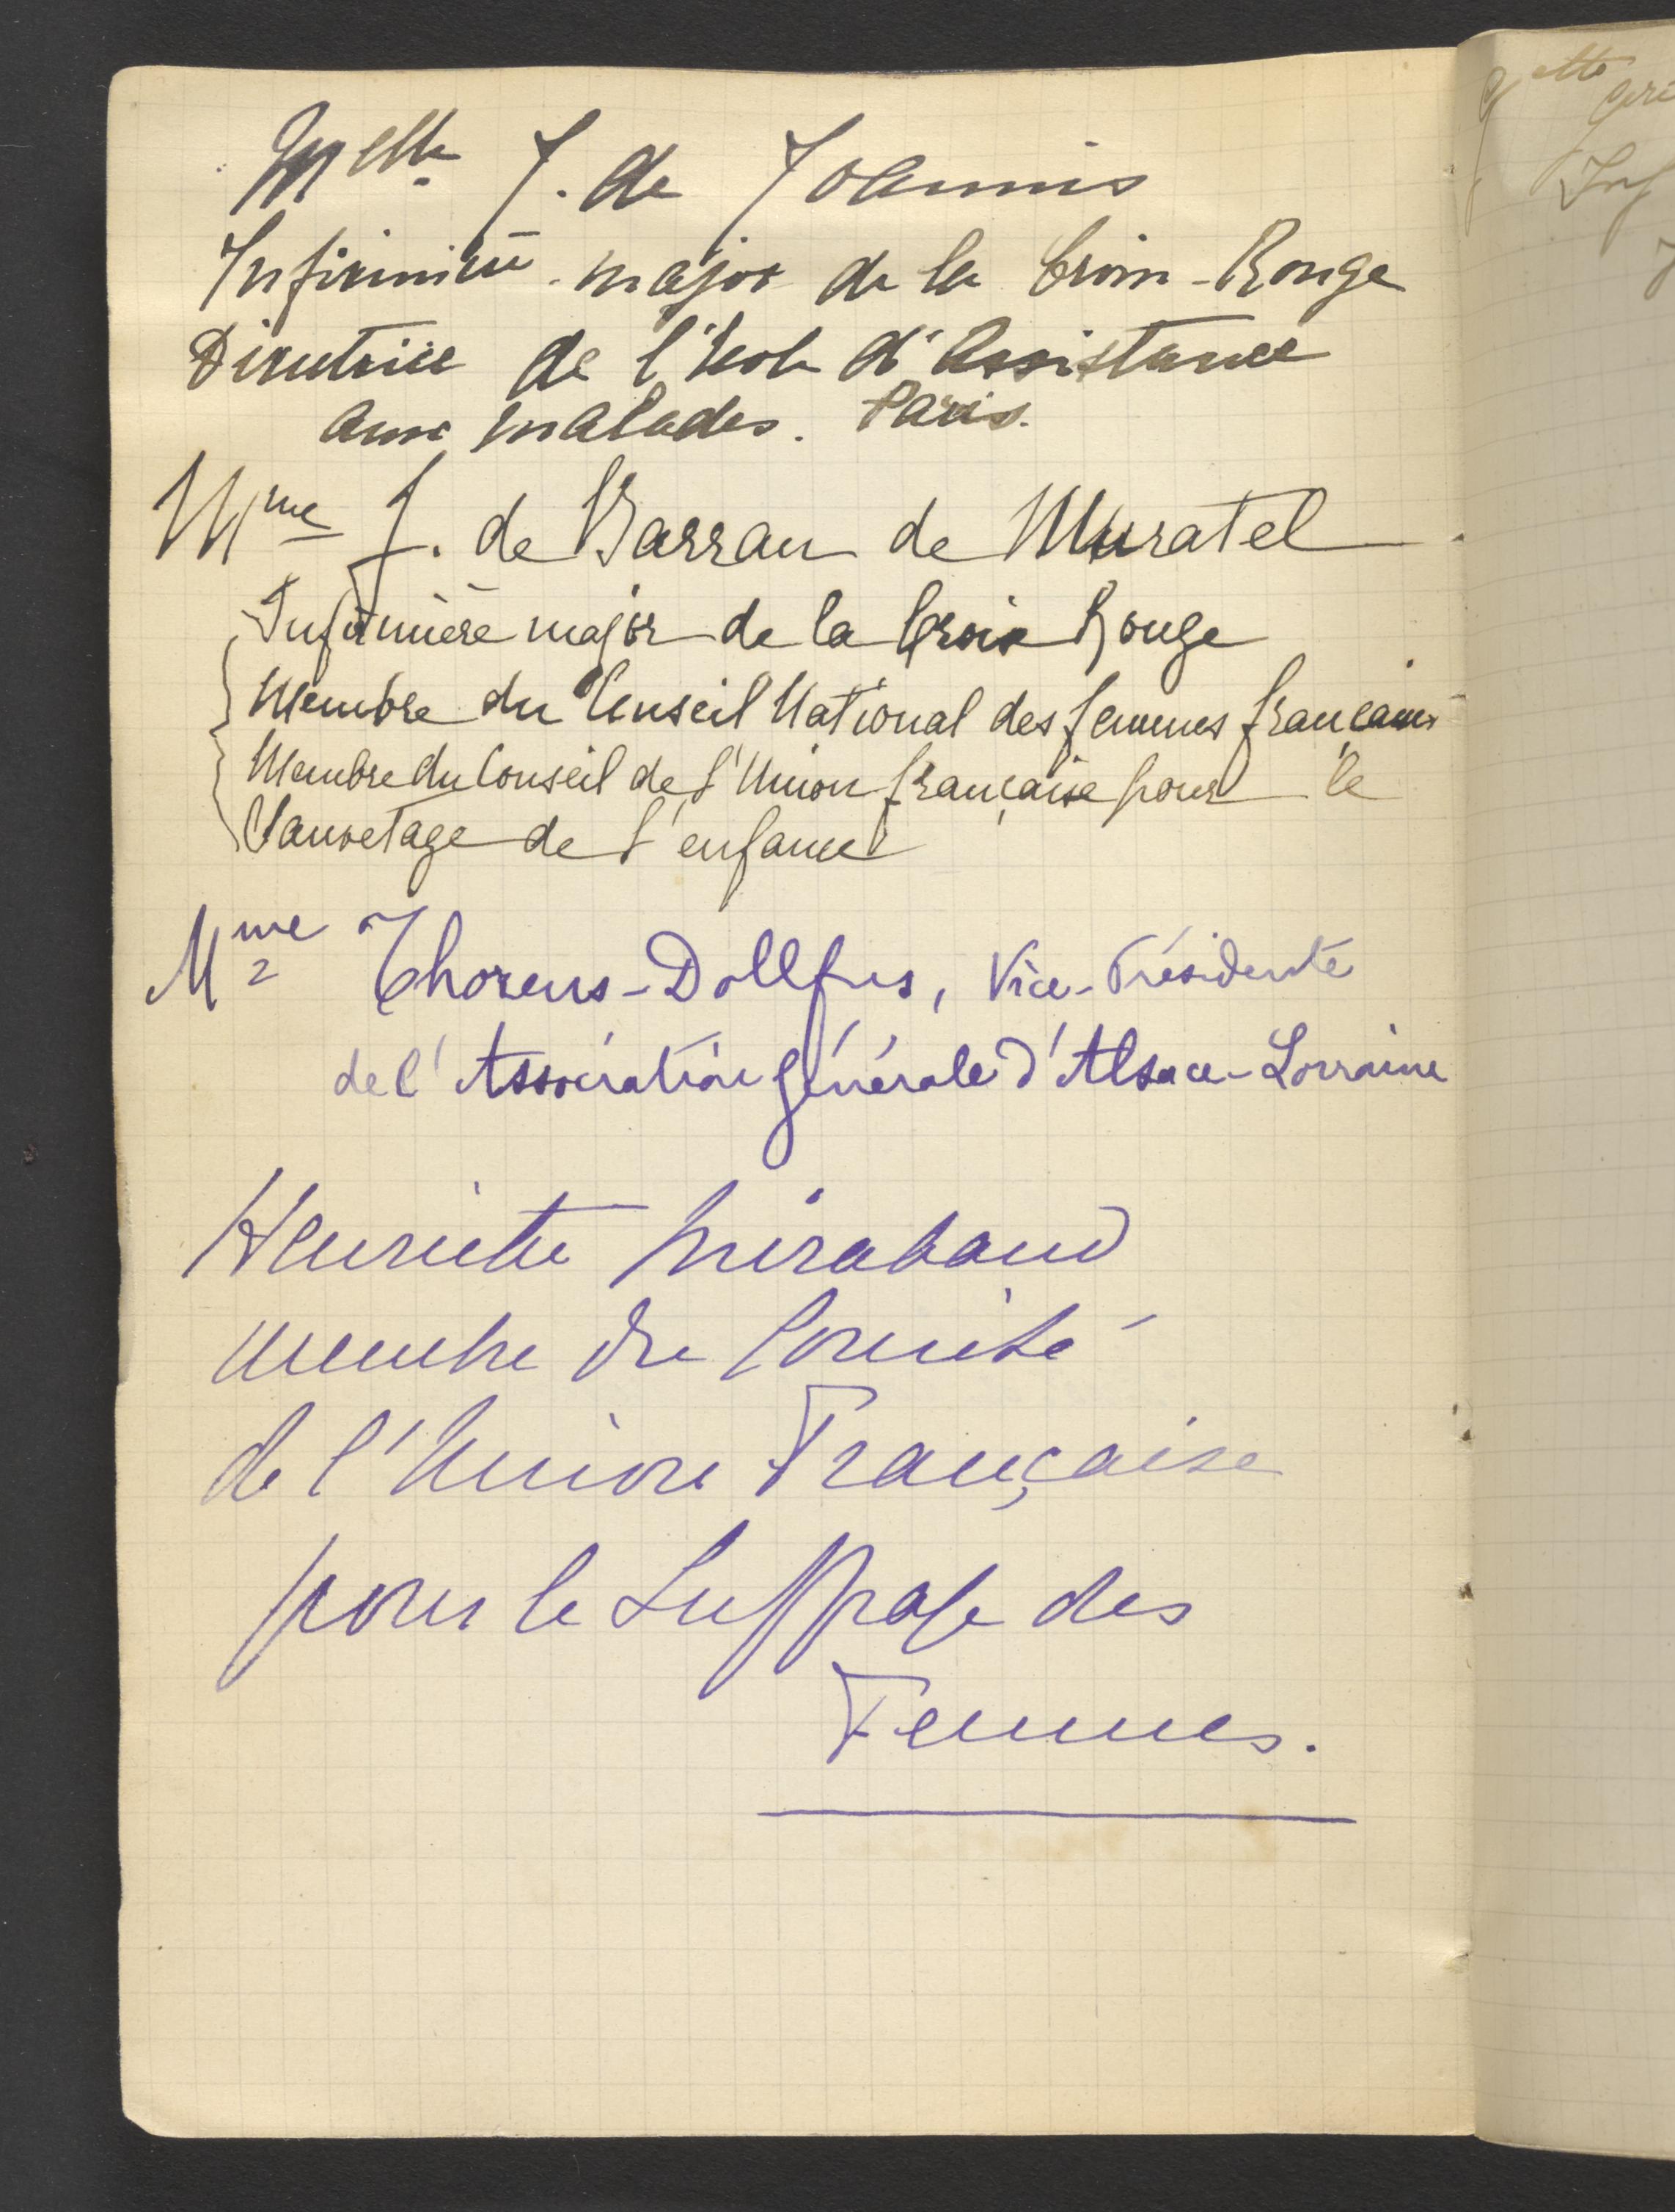 Melle J. de Joannis
Infirmière-major de la Croix-Rouge
Directrice de l'Ecole d'Assistance
aux malades. Paris.
Mme J. de Barrau de Muratel
Infirmière major de la Croix Rouge
Membre du Conseil National des femmes françaises
Membre du Conseil de l'Union française pour le
Sauvetage de l'enfance
Mme Thorens-Dollfus, Vice-Présidente
de l'Association générale d'Alsace-Lorraine
Henriette Mirabaud
membre du Comité
de l'Union Française
pour le Suffrage des
Femmes.